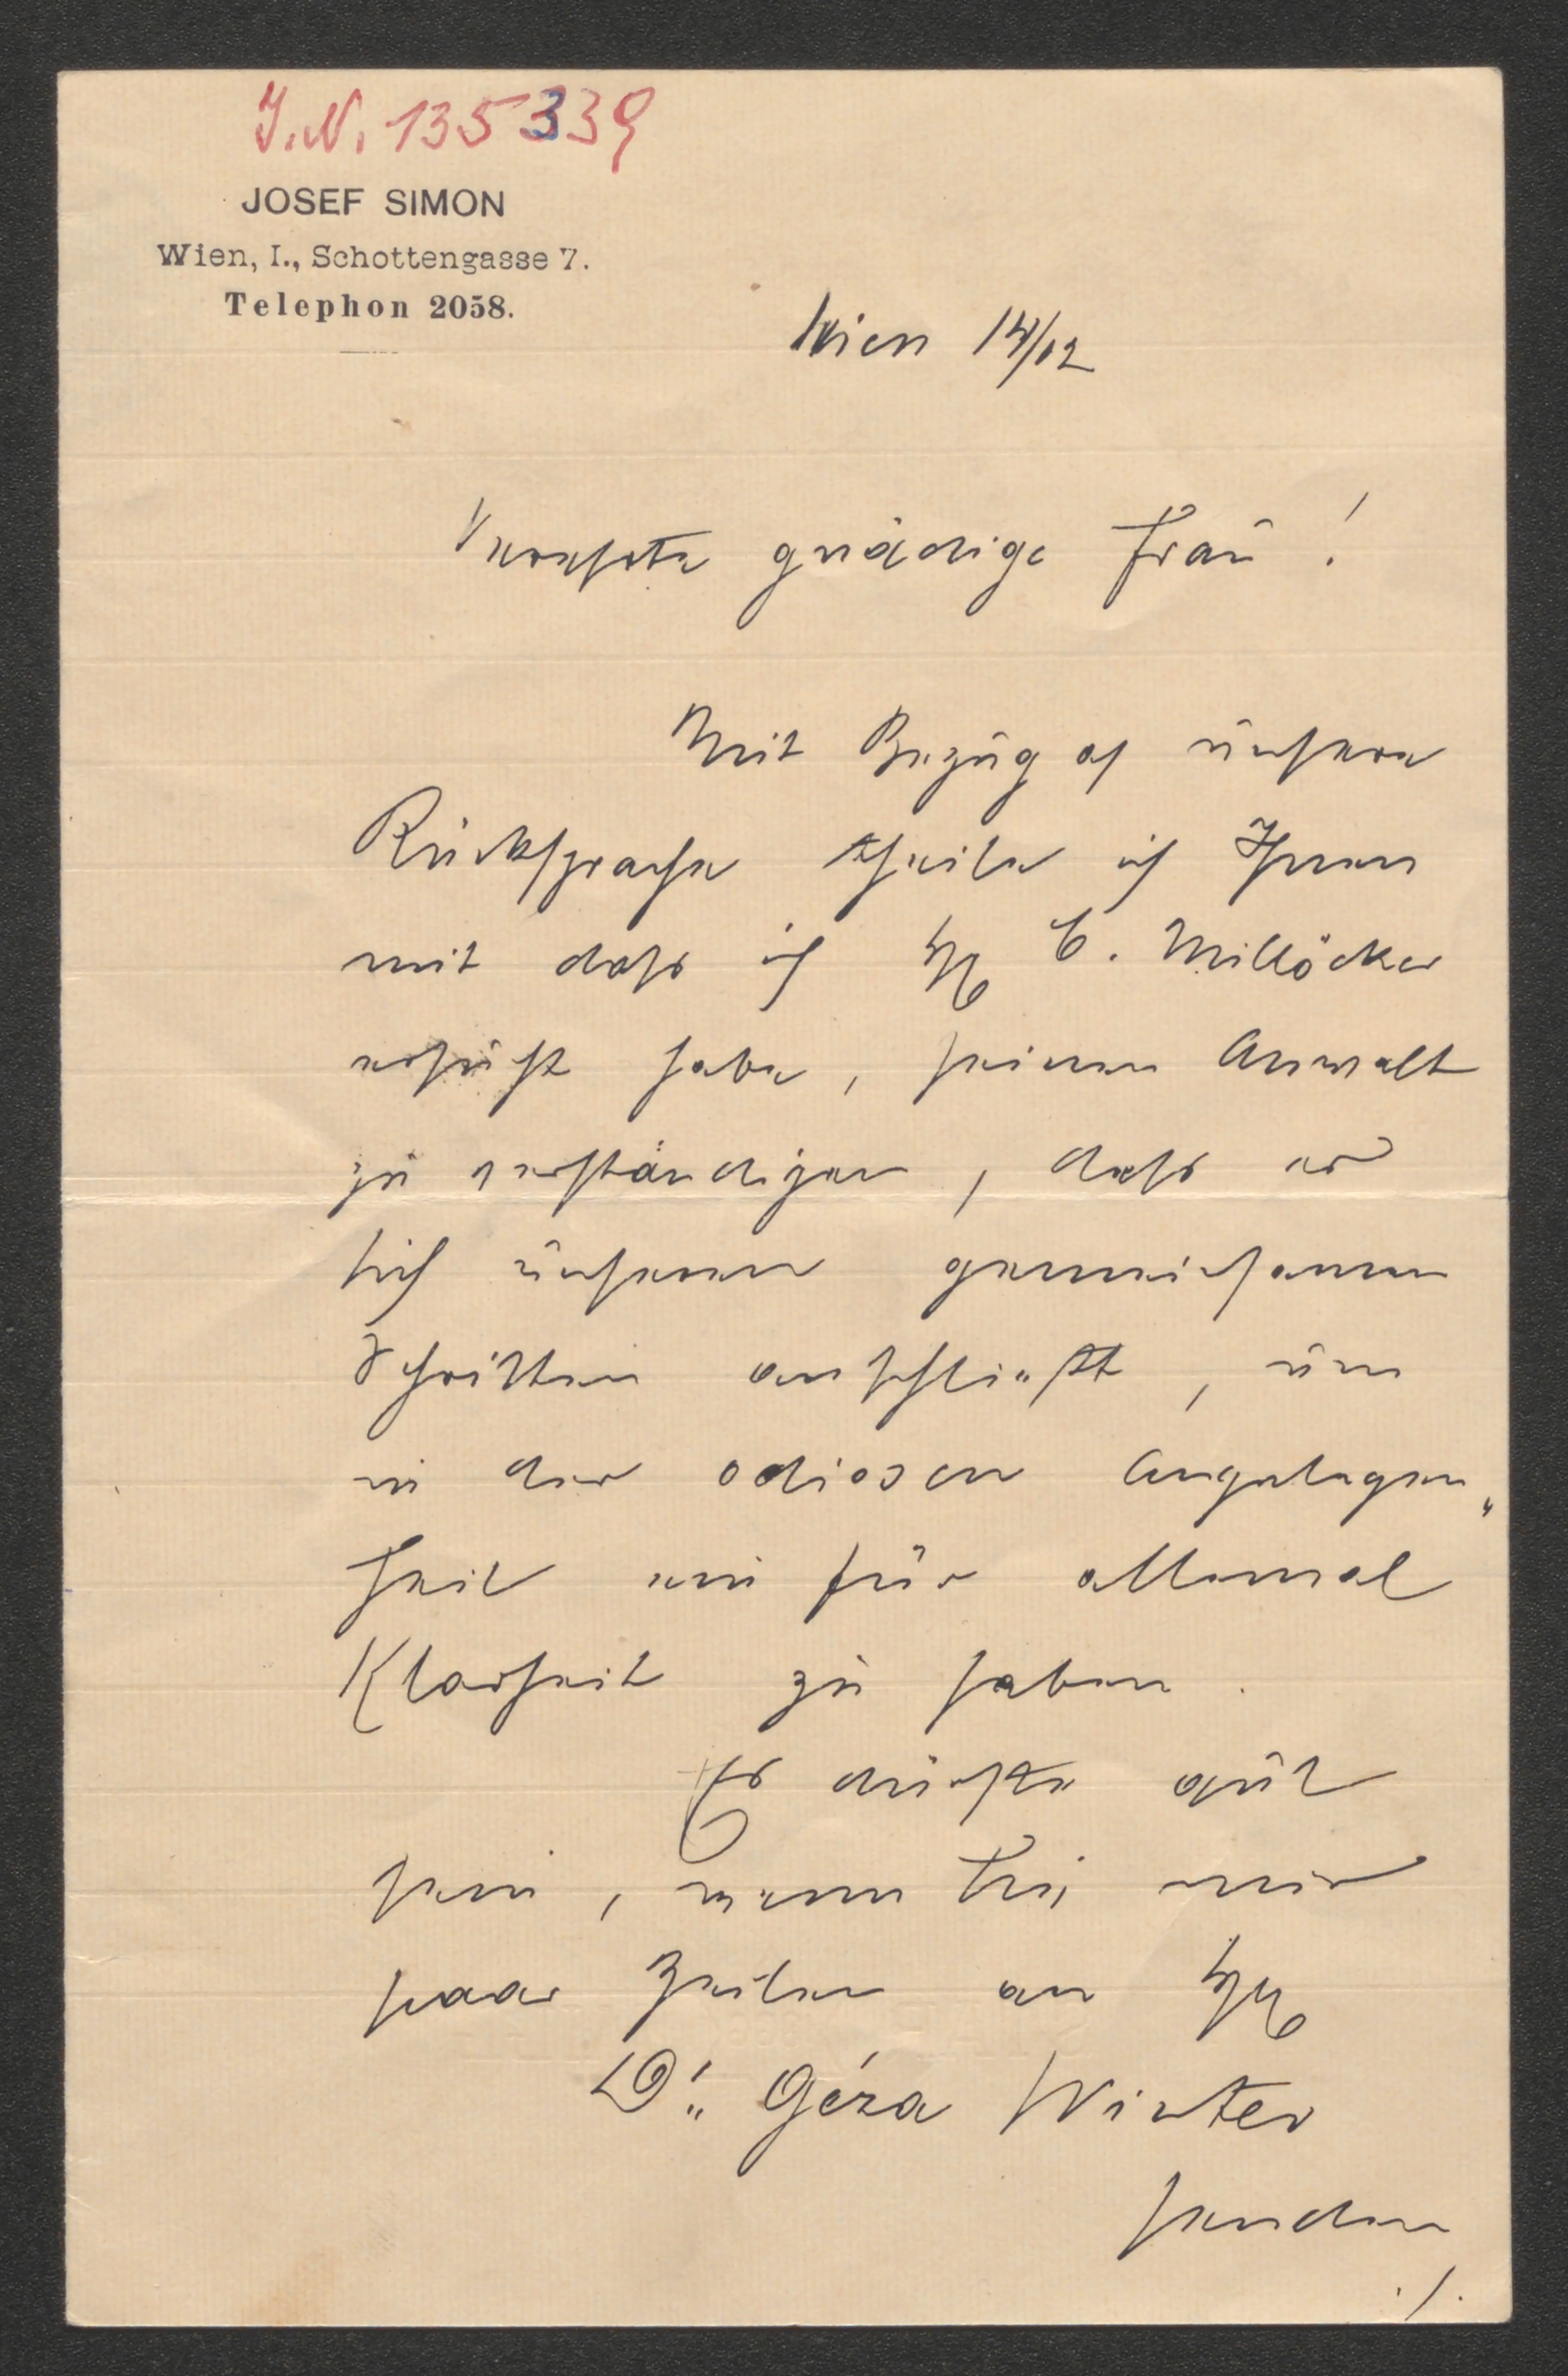 J.N. 135339
JOSEF SIMON
Wien, I., Schottengasse 7.
Telephon 2058.
Wien 14/12
Verehrte gnädige Frau!
Mit Bezug auf unsere
Rücksprache theile ich Ihnen
mit dass ich H C. Millöcker
ersucht habe, seinen Anwalt
zu verständigen, dass er
sich unseren gemeinsamen
Schritten anschließt, um
in der odiosen Angelegen„
heit ein für allemal
Klarheit zu haben.
Es dürfte gut
sein, wenn Sie
paar Zeilen an H
Dr. Géza Winter
senden
./.